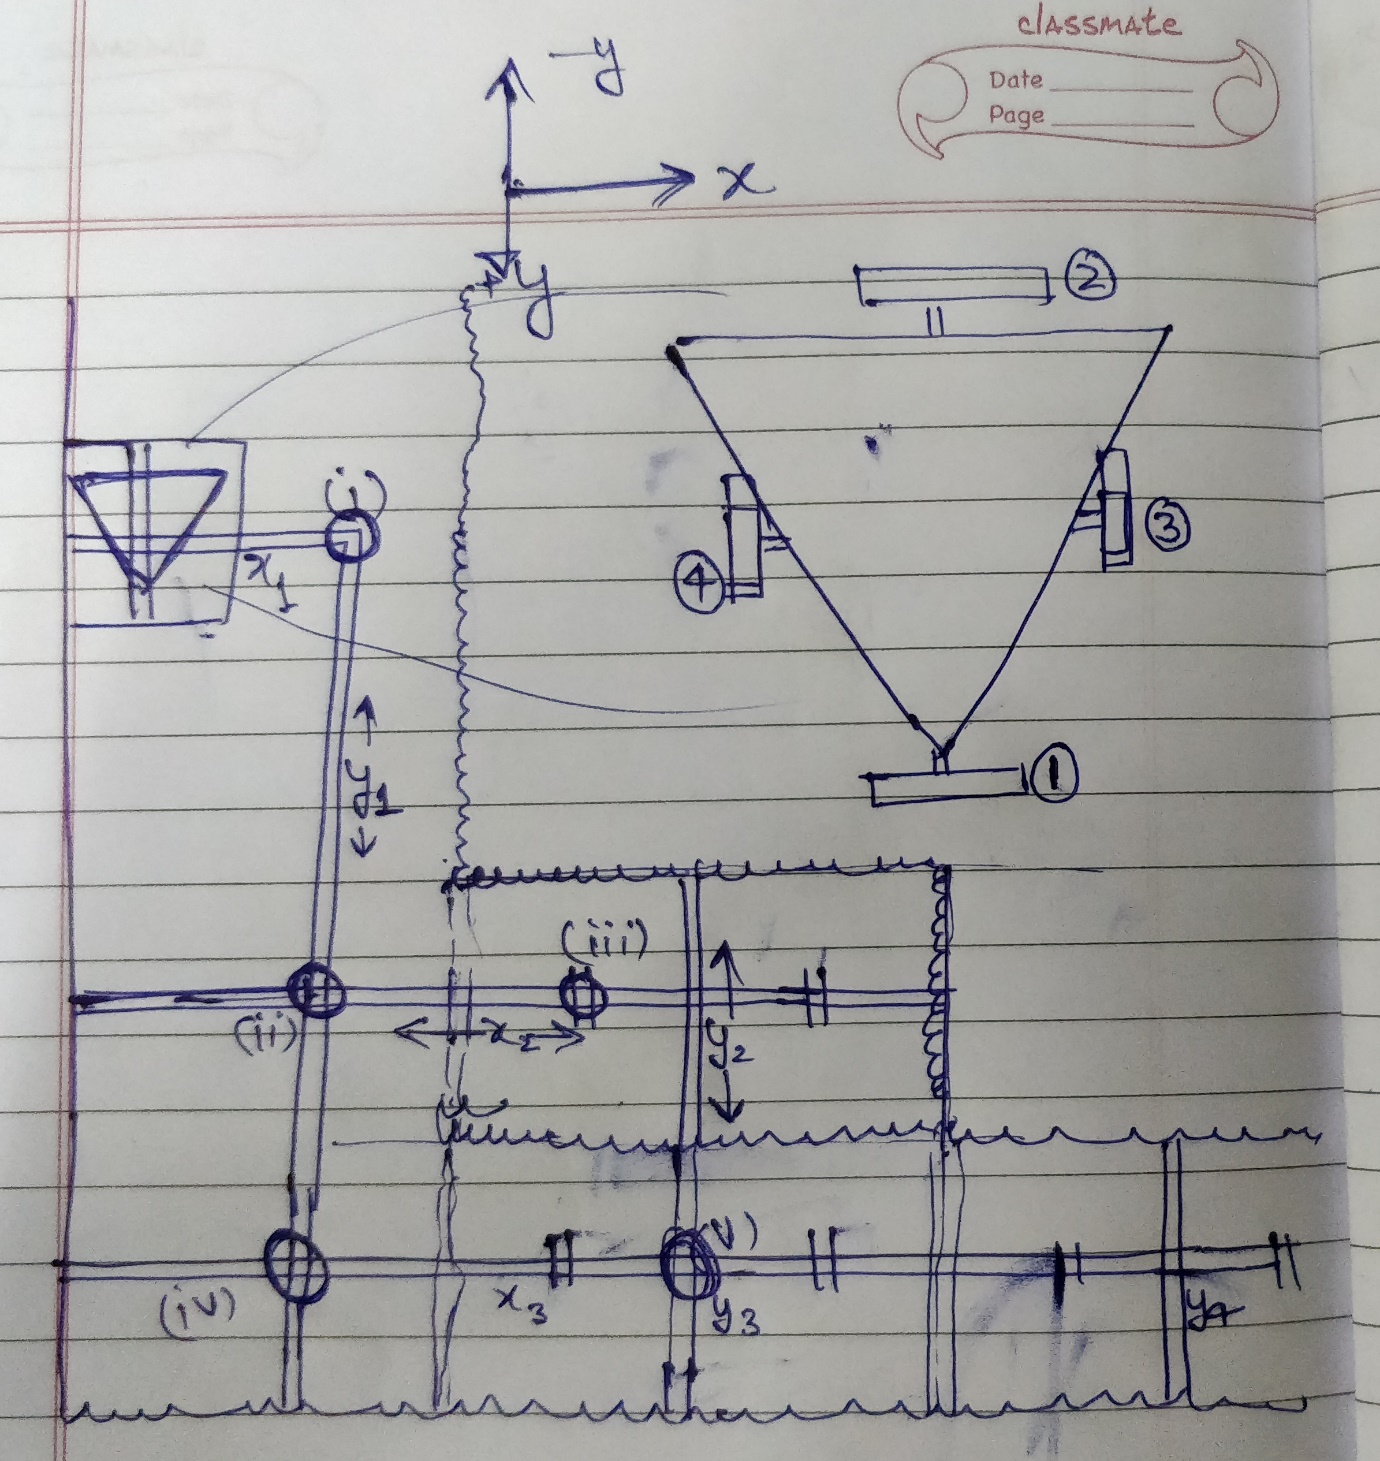 classmate
Date
Page
-y
x
+y
②
(i)
③
x₁
④
y₁
①
(iii)
(ii)
x₂
y₂
(iv)
x₃
(v)
y₃
y₄